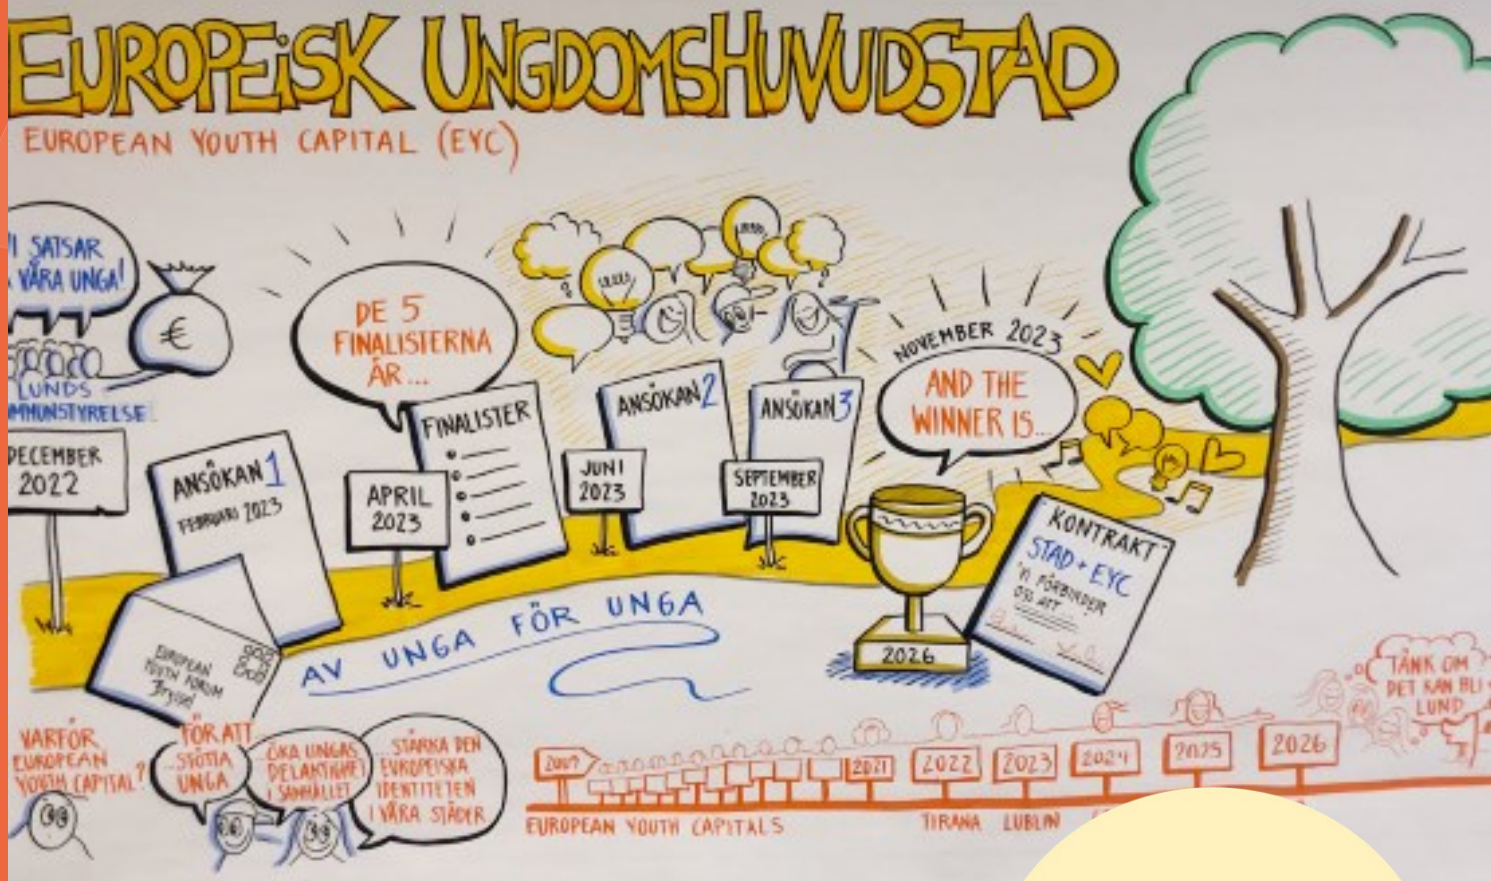 EUROPEiSK UNGDOMSHUVUDSTAD
EUROPEAN YOUTH CAPITAL (EYC)
SATSAR
VÅRA UNGA!
€
LUNDS
DECEMBER
2022
ANSÖKAN 1
FEBRUARI 2023
EUROPEAN
YOUTH FORUM
Bryssel
DE 5
FINALISTERNA
ÄR...
FINALISTER
APRIL
2023
ANSÖKAN 2
JUNI
2023
ANSÖKAN 3
SEPTEMBER
2023
NOVEMBER 2023
AND THE
WINNER IS...
2026
KONTRAKT
STAD + EYC
"VI FÖRBINDER
OSS ATT
AV UNGA FÖR UNGA
VARFÖR
EUROPEAN
YOUTH CAPITAL?
FÖR ATT
...STÖTTA
UNGA
...ÖKA UNGAS
DELAKTIGHET
I SAMHÄLLET
...STÄRKA DEN
EUROPEISKA
IDENTITETEN
I VÅRA STÄDER
2009
2021
2022
2023
2024
2025
2026
EUROPEAN YOUTH CAPITALS
TIRANA
LUBLIN
TÄNK OM
DET KAN BLI
LUND